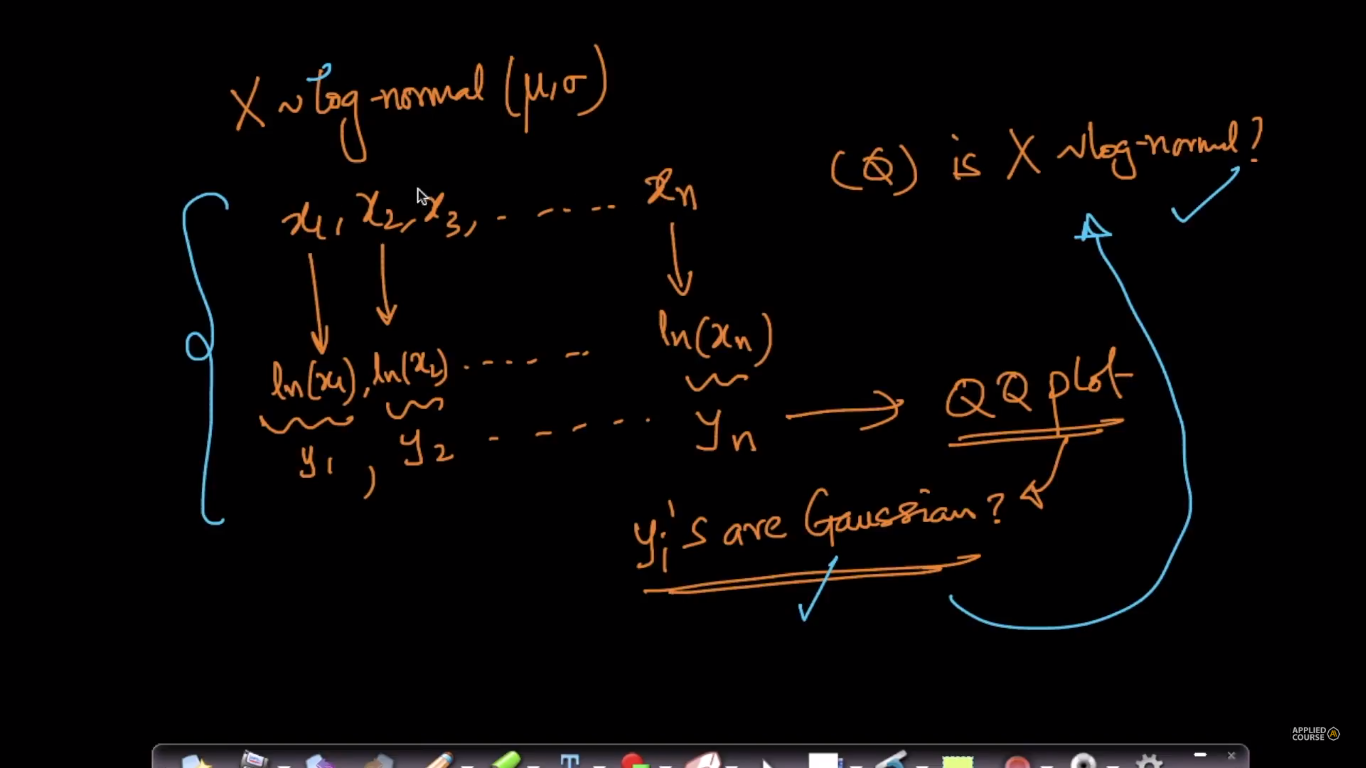 X ~ log-normal (μ, σ)
(Q) is X ~ log-normal?
x1, x2, x3, . - - . . . xn
ln(x1), ln(x2) . - - - . - - ln(xn)
y1, y2 - - - - - . yn → QQ plot
yi's are Gaussian?
APPLIED
COURSE